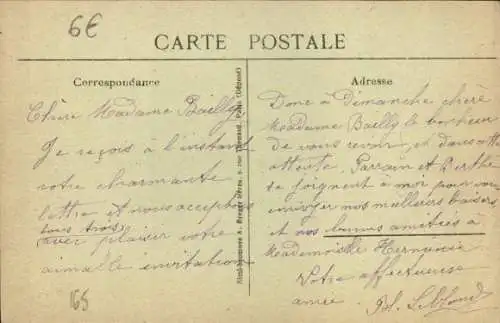 6€
CARTE POSTALE
Correspondance
Chère Madame Bailly
Je reçois à l'instant
votre charmante
lettre et nous acceptons
tous trois
avec plaisir votre
aimable invitation
165
Adresse
Donc à Dimanche chère
Madame Bailly le bonheur
de vous revoir, et dans cette
attente, Parrain et Berthe
se joignent à moi pour vous
envoyer nos meilleurs baisers
et nos bonnes amitiés à
Mademoiselle Hermance
Votre affectueuse
amie.